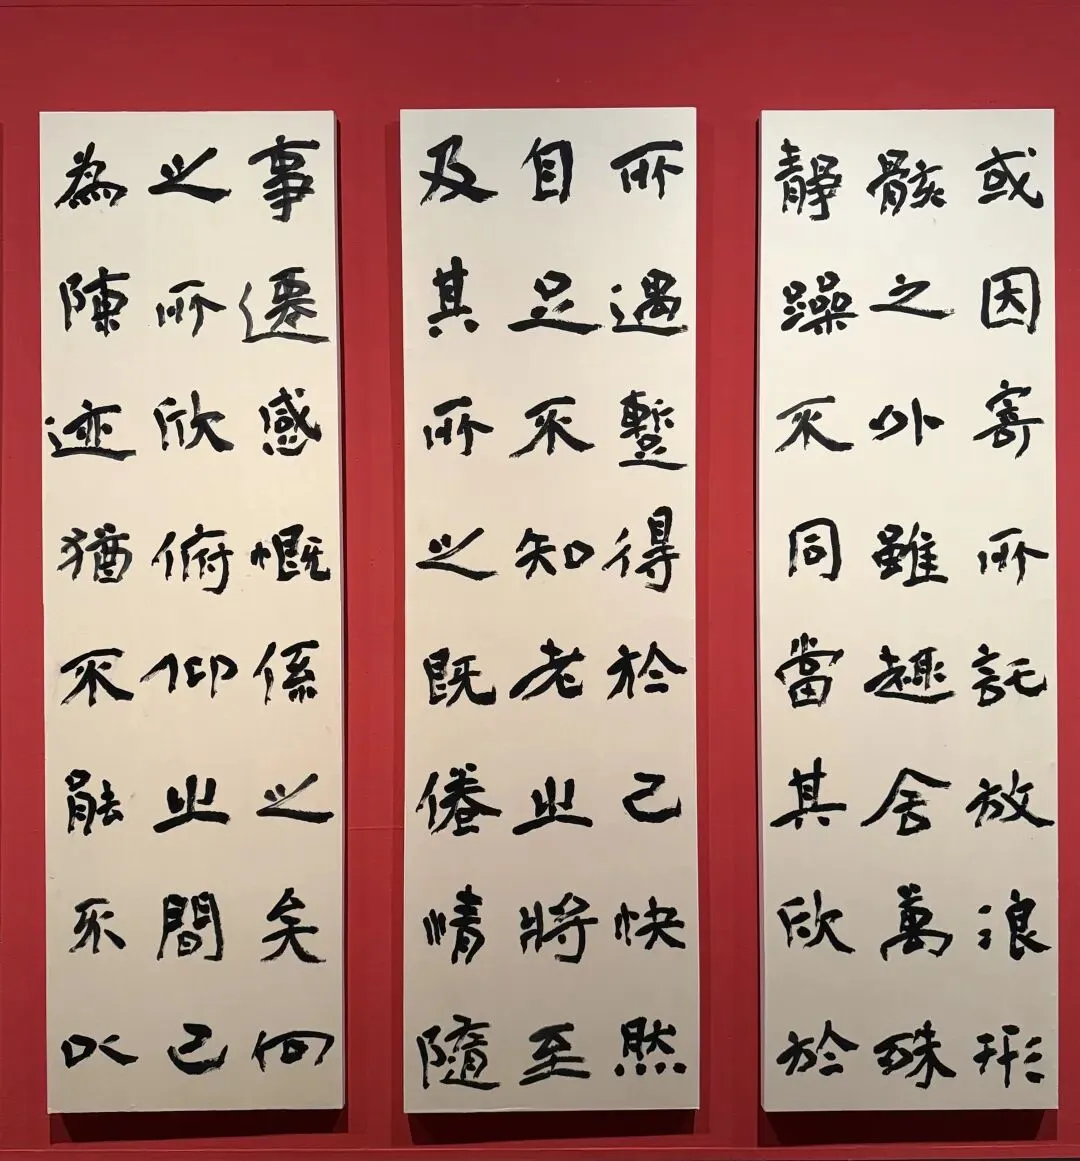 或因寄所託放浪形
骸之外雖趣舍萬殊
靜躁不同當其欣於
所遇蹔得於己快然
自足不知老之將至
及其所之既倦情隨
事遷感慨係之矣向
之所欣俯仰之間已
為陳迹猶不能不以